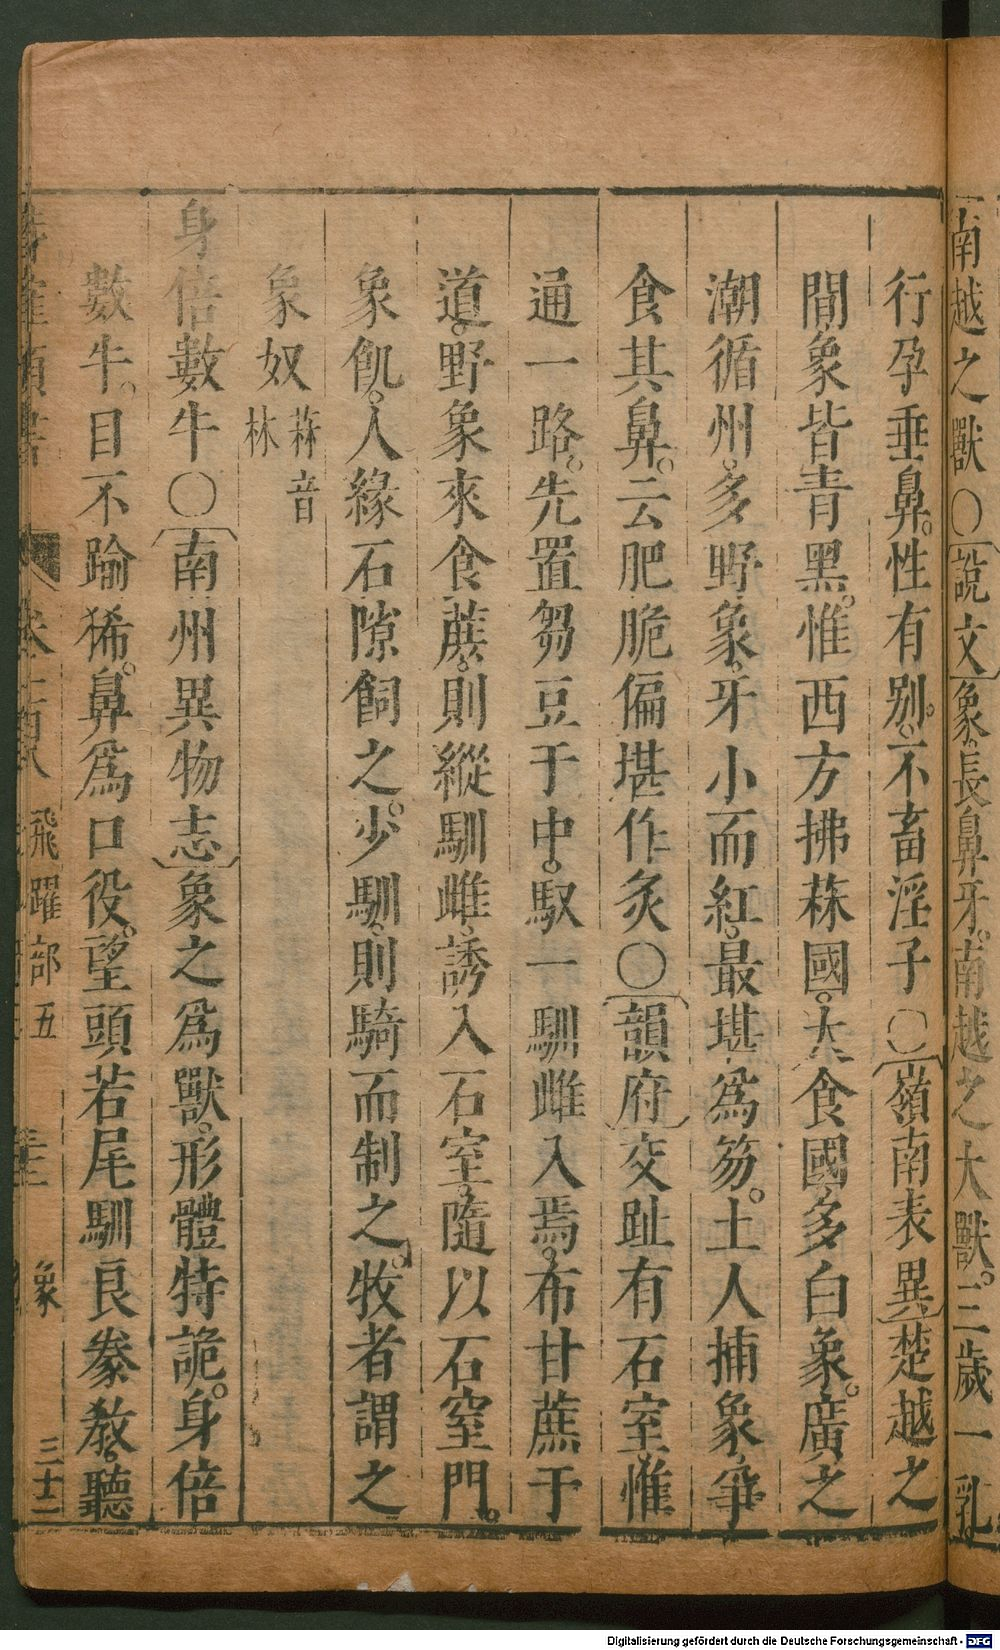 南越之獸○說文象長鼻牙。南越之大獸。三歲一乳
行孕垂鼻。性有别。不畜淫子○嶺南表異楚越之
間象皆青黑。惟西方拂菻國。大食國多白象。廣之
潮循州。多野象。牙小而紅。最堪爲笏。土人捕象爭
食其鼻。云肥脆偏堪作炙○韻府交趾有石室惟
通一路。先置芻豆于中。馭一馴雌入焉。布甘蔗于
道。野象來食蔗。則縱馴雌。誘入石室。隨以石窒門。
象飢。人緣石隙飼之。少馴。則騎而制之。牧者謂之
象奴菻音林
身倍數牛○南州異物志象之爲獸。形體特詭。身倍
數牛。目不踰狶。鼻爲口役。望頭若尾馴良豢教。聽
飛躍部五 象 三十二
Digitalisierung gefördert durch die Deutsche Forschungsgemeinschaft - DFG